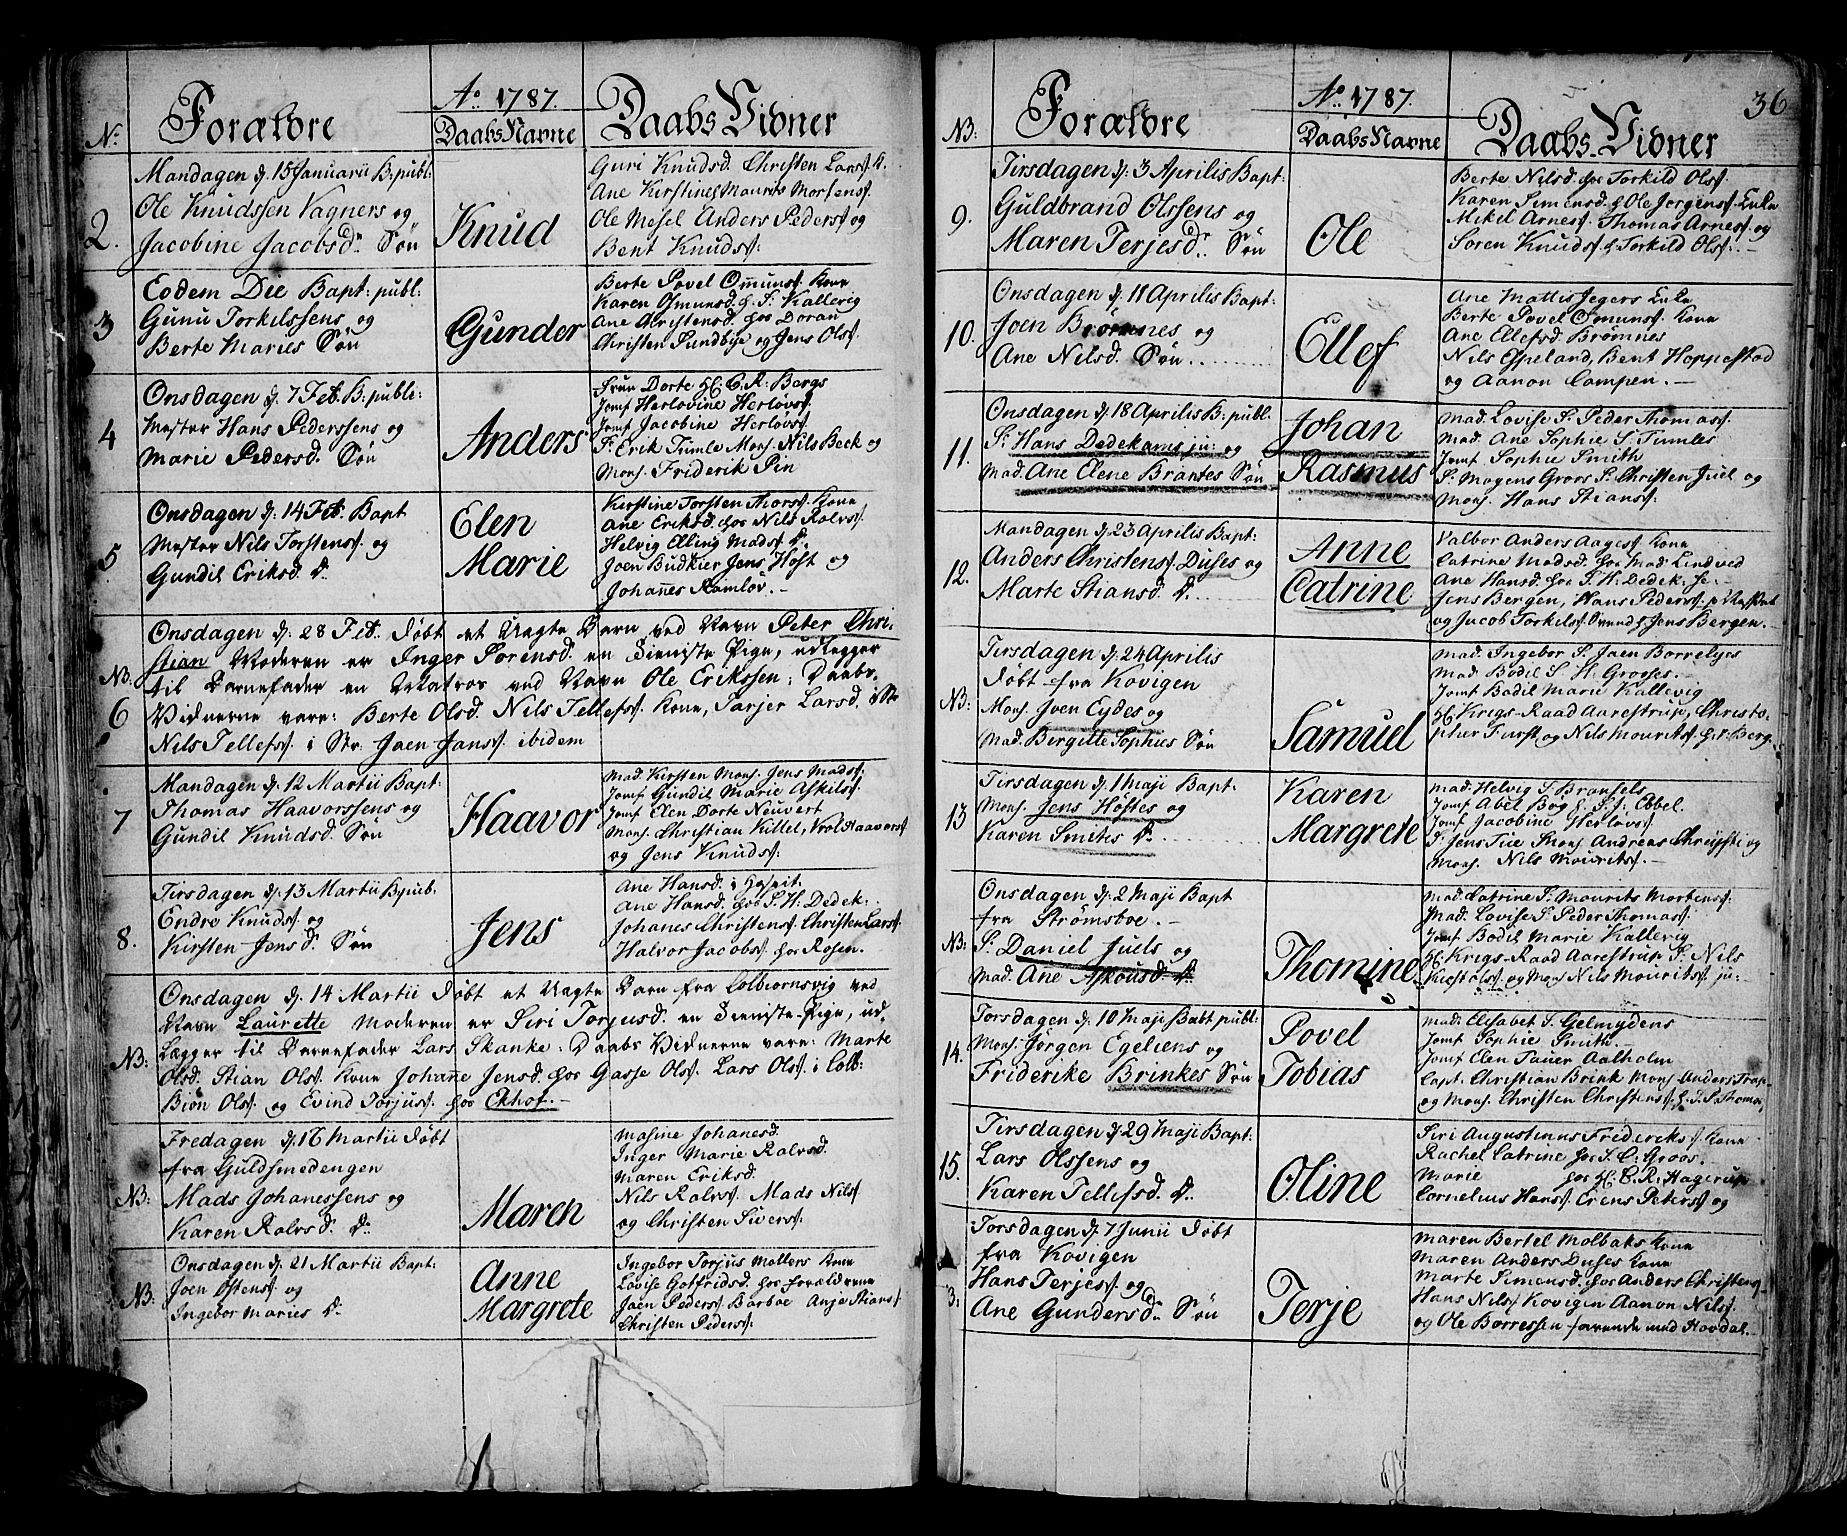 No. Forældre Ao. 1787. Daabs Navne Daabs Vidner
2. Mandagen d. 15 Januarii B. publ:
Ole Knudssen Vagners og
Jacobine Jacobsdr. Søn
Knud
Guri Knudsd. Christen Larss. K.
Ane Kirstine Maurits Mortens.
Ole Mesel Anders Peders. og
Bent Knuds.
3 Eodem Die Bapt: publ:
Gunu Torkilssens og
Berte Maries Søn
Gunder
Berte Povel Omunds. Kone
Karen Osmunsd. h. S. Kallevig
Ane Christensd. hos Doran
Christen Sundbye og Jens Ols.
4 Onsdagen d. 7 Feb. B: publ:
Mester Hans Pederssens og
Marie Pedersd. Søn
Anders
Frue Dorte H. C. R: Bergs
Jomf Herlovine Herløvs.
Jomf Jacobine Herløvs.
Sr. Erik Tumle Mons. Nils Beck og
Mons. Friderik Pin
5 Onsdagen d. 14 Feb. Bapt
Mester Nils Torstens. og
Gundil Eriksd. D.
Elen
Marie
Kirstine Torsten Thors. Kone
Ane Eriksd. hos Nils Ralvs.
Helvig Elling Mads. D.
Joen Budkier Jens Høst og
Johannes Ramløv.
NB. 6 Onsdagen d. 28 Feb. døbt et Uægte Barn ved Navn Peter Chri-
stian Moderen er Inger Sørensd. en Tieniste Pige, udlegger
til Barnefader en Matros ved Navn Ole Erikssen: Daabs
Vidnerne vare: Berte Olsd. Nils Tellefs. Kone, Tarjer Larsd. i Str
Nils Tellefs. i Str. Joen Jans. ibidem
7 Mandagen d. 12 Martii Bapt:
Thomas Haavorssens og
Gundil Knudsd. Søn
Haavor
Mad. Kirsten Mons. Jens Mads.
Jomf Gundil Marie Askils.
Jomf Elen Dorte Neuvert
Mons. Christian Kittel, Vrol Haavors.
og Jens Knuds.
8. Tirsdagen d. 13 Martii B. pub.
Endre Knuds. og
Kirsten Jensd. Søn
Jens
Ane Hansd. i Hospit.
Ane Hansd. hos S. H. Dedek:
Johanes Christens. Christen Lars.
Halvor Jacobs. hos Rosen.
NB: Onsdagen d. 14 Martii døbt et Uægte Barn fra Colbiørnsvig ved
Navn Laurette Moderen er Siri Torjusd. en Tieniste-Pige, ud-
lægger til Barnefader Lars Skanke: Daabs Vidnerne vare: Marte
Olsd. Stian Ols. Kone Johanne Jensd. hos Gasse Ols. Lars Ols. i Colb:
Biøn Ols. og Evind Torjus. hos Ekhof.
NB: Fredagen d. 16 Martii døbt
fra Guldsmedengen
Mads Johanessens og
Karen Ralvsd. Dr.
Maren
Masine Johanesd.
Inger Marie Ralvsd.
Maren Eriksd.
Nils Ralvs. Mads Nils.
og Christen Sivers.
NB: Onsdagen d. 21 Martii Bapt:
Joen Østens. og
Ingebor Maries D.
Anne
Margrete
Ingebor Torjus Møllers Kone
Lovise Gotfridsd. hos Forældrene
Joen Peders. Barboe Anje Stians.
Christen Peders.
36
NB: Forældre Ao. 1787. Daabs Navne Daabs-Vidner
9. Tirsdagen d. 3 Aprilis Bapt:
Guldbrand Olssens og
Maren Terjesdr. Søn
Ole
Berte Nilsd. hos Torkild Ols.
Karen Simensd. h. Ole Jørgens. Enke
Mikel Arnes. Thomas Arnes. og
Søren Knuds. h. Torkild Ols.
10. Onsdagen d. 11 Aprilis Bapt:
Joen Brømnes og
Ane Nilsd. Søn
Ellef
Ane Mattis Jegers Enke
Berte Povel Omuns. Kone
Ane Ellefsd. Brømnes
Nils Espeland, Bent Hoppestad
og Aanon Campen.
11. Onsdagen d. 18 Aprilis B: publ.
Sr. Hans Dedekams jun: og
Mad. Ane Elene Brantes Søn
Johan
Rasmus
Mad. Lovise S. Peder Thomas.
Mad. Ane Sophie S. Tumles
Jomf Sophie Smith
S. Mogens Groos S. Christen Juel og
Mons. Hans Stians.
12. Mandagen d. 23 Aprilis Bapt:
Anders Christens. Duses og
Marte Stiansd. D.
Anne
Catrine
Valbor Anders Aages. Kone
Catrine Madsd. hos Mad. Lindved
Ane Hansd. hos S. H. Dedek: se.
Jens Bergen, Hans Peders.
og Jacob Torkils. Svend h. Jens Bergen.
NB: Tirsdagen d. 24 Aprilis
døbt fra Kovigen
Mons. Joen Eydes og
Mad. Birgitte Sophies Søn
Samuel
Mad. Ingebor S. Joen Borrelyes
Mad. Bodil S. H. Grosses.
Jomf Bodil Marie Kallevig
H. Krigs-Raad Aarestrup, Christo-
pher Furst og Nils Mourits. h. S. Berg.
13 Tirsdagen d. 1 Maji Bapt:
Mons. Jens Høstes og
Karen Smiths D.
Karen
Margrete
Mad. Helvig S. Bronsels
Jomf Abel Bog h. S. J. Ebbel.
Jomf Jacobine Herløvs.
S. Jens Tue Mons. Andreas Chrispti og
Mons. Nils Mourits.
NB: Onsdagen d. 2 Maji Bapt
fra Strømsboe.
S. Daniel Juels og
Mad. Ane Askousd. D.
Thomine
Mad. Catrine S. Mourits Mortens.
Mad. Lovise S. Peder Thomas.
Jomf Bodil Marie Kallevig
H. Krigs-Raad Aarestrup S. Nils
og Mons Nils Mourits. ju:
14. Torsdagen d. 10 Maji Babt publ:
Mons. Jørgen Egeliens og
Friderike Brinkes Søn
Povel
Tobias
Mad: Elisabet S. Gelmydens
Jomf Sophie Smith.
Jomf Elen Tauer Aalholm
Capt. Christian Brink Mons. Anders Trap
og Mons. Christen Christens. h. S. P. Thomas.
15. Tirsdagen d. 29 Maji Bapt:
Lars Olssens og
Karen Tellefsd. D.
Oline
Siri Augustinus Frideriks. Kone
Rachel Catrine hos S. C: Groos.
Marie hos H. C. R: Hagerup
Cornelius Hans. Erens Peters. og
Torsdagen d. 7 Junii døbt
fra Kovigen
Hans Terjes. og
Ane Gundersdr. Søn
Terje
Maren Bertel Molbaks Kone
Maren Anders Duses Kone
Marte Simensd. hos Anders Christens.
Hans Nils. Kovigen Aanon Nils.
og Ole Børressen farende med Hovdal.